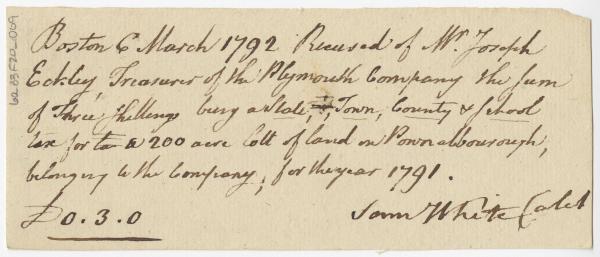 Boston 6 March 1792 Received of Mr. Joseph
Eckley, Treasurer of the Plymouth Company the sum
of Three shillings being a State, Town, County & School
tax for a 200 acre lott of land in Pownalborough,
belonging to the Company, for the year 1791.
£0.3.0 Sam White
6243F20_009